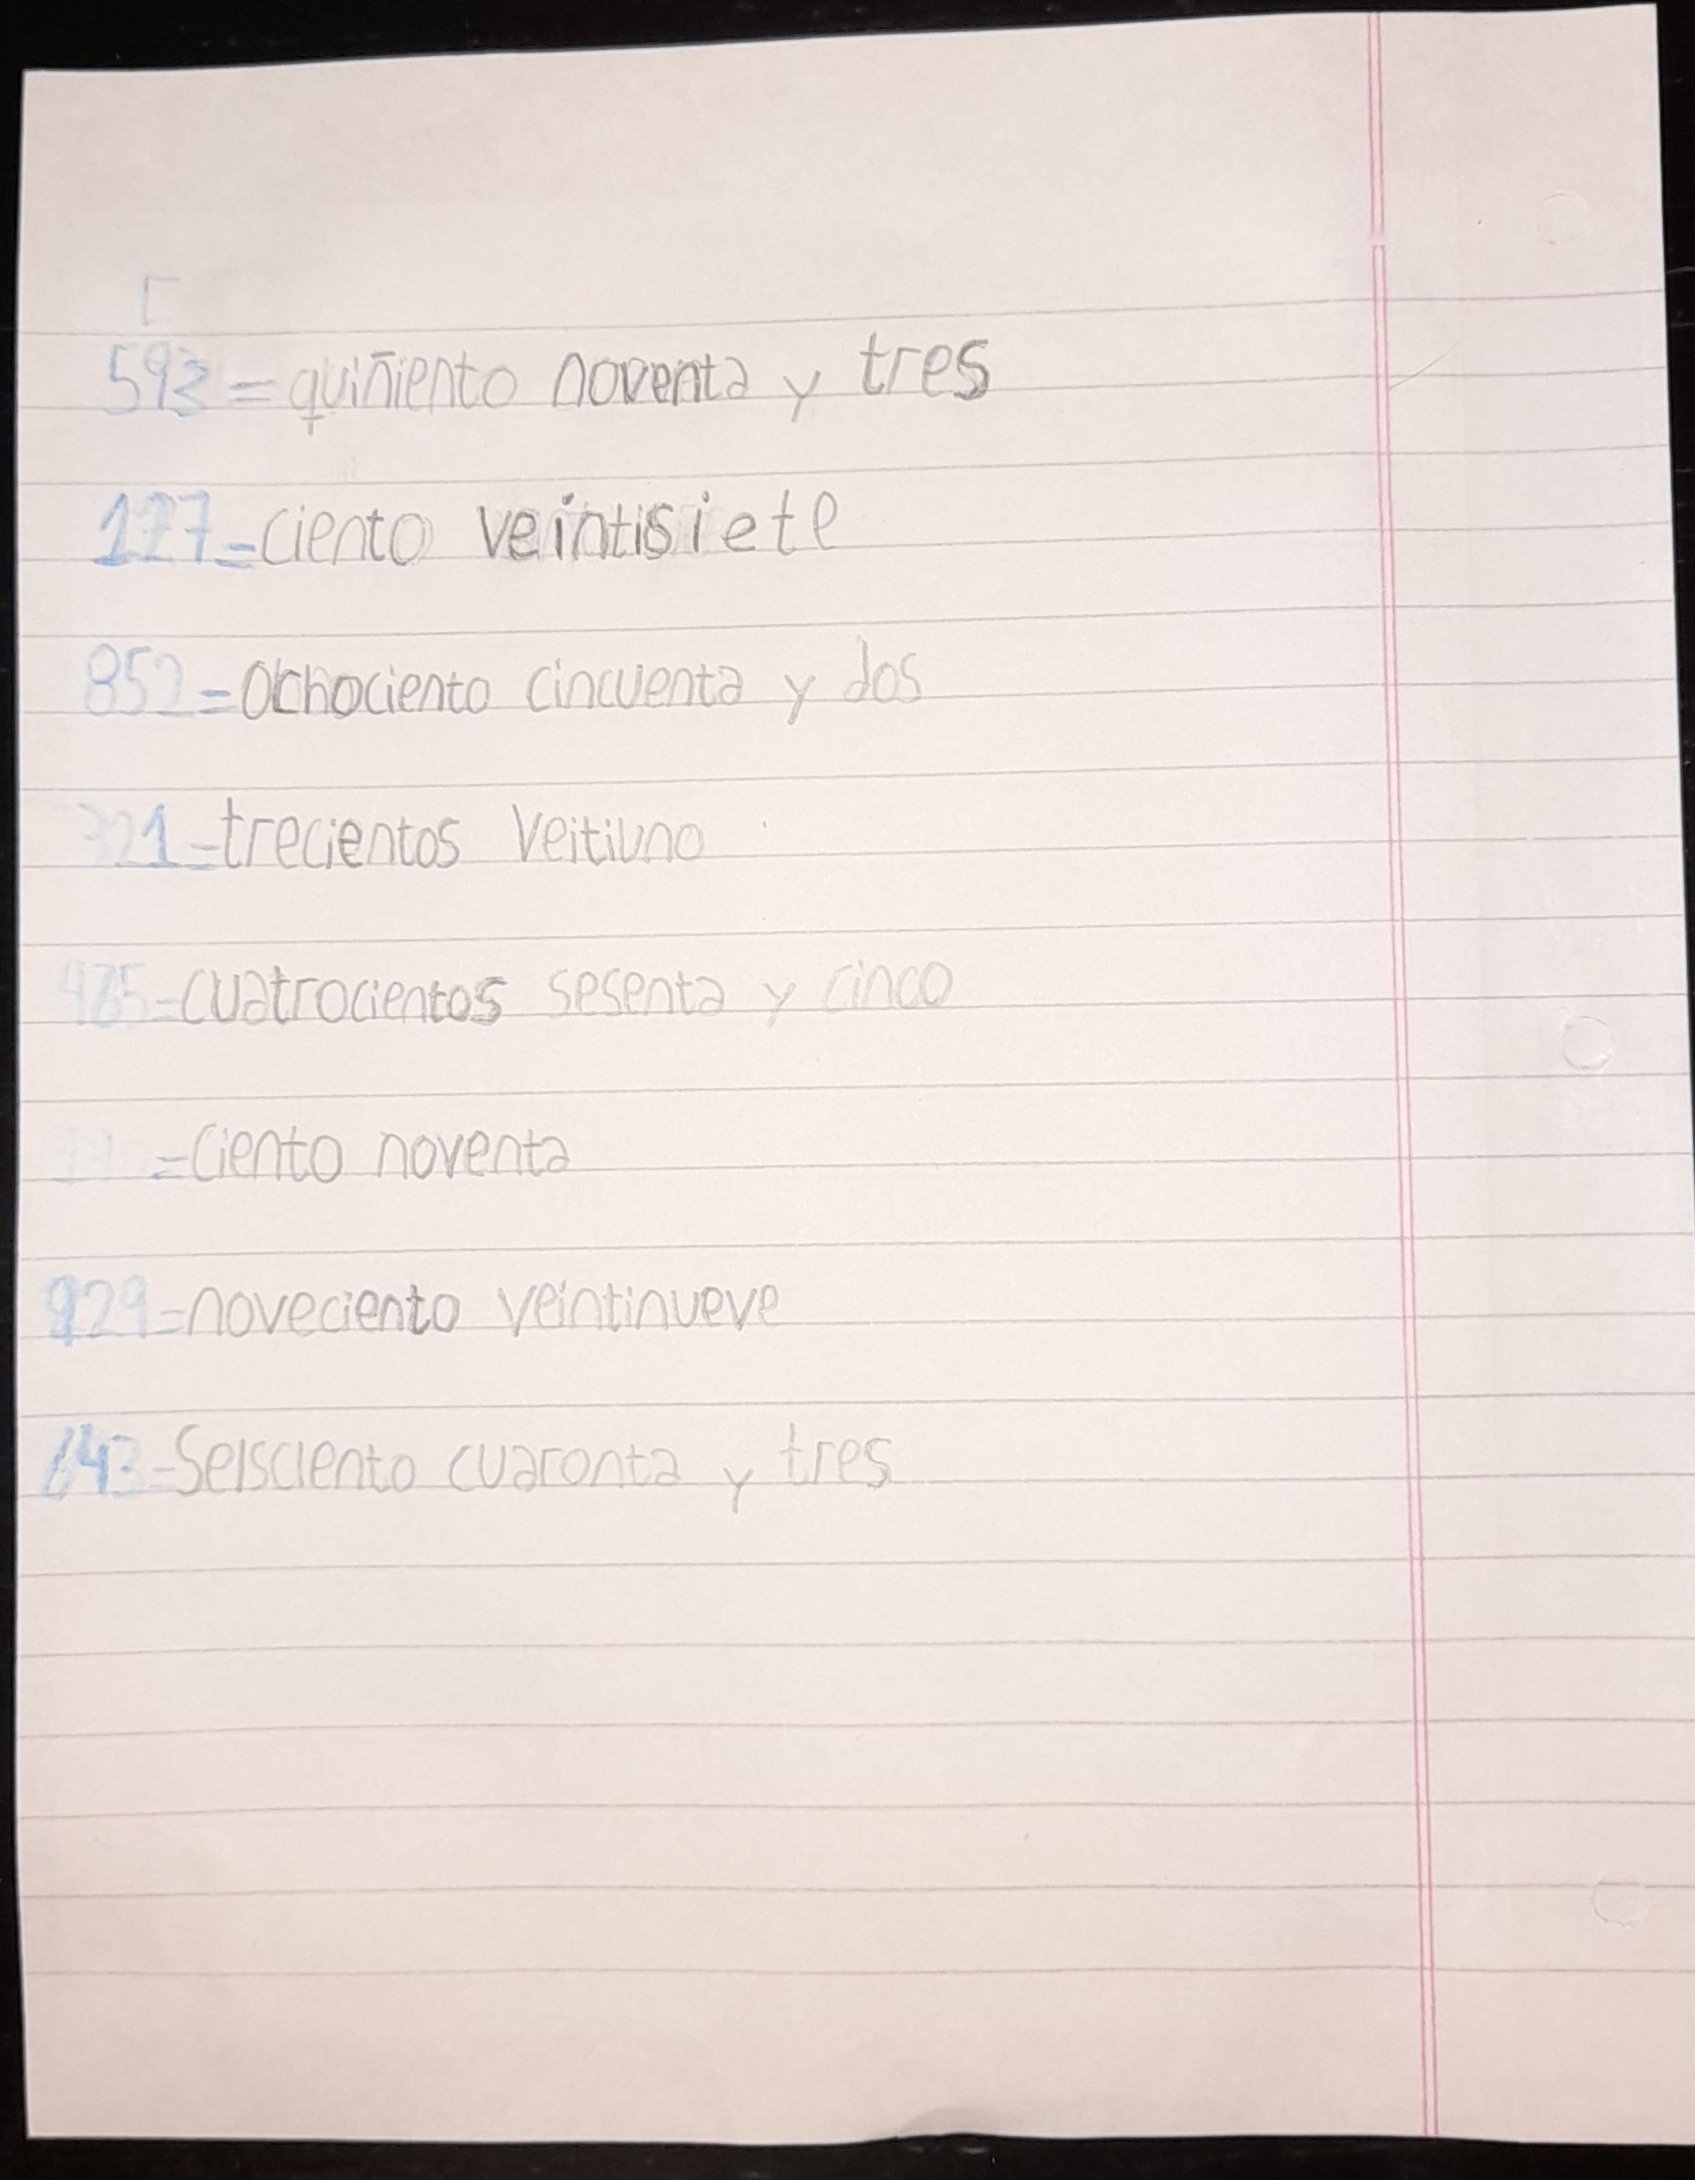 593 = quiñiento noventa y tres
127 = ciento veintisiete
852 = Ochociento cincuenta y dos
321 = trecientos veitiuno
= cuatrocientos sesenta y cinco
= ciento noventa
929 = noveciento veintinueve
643 = Seisciento cuaronta y tres